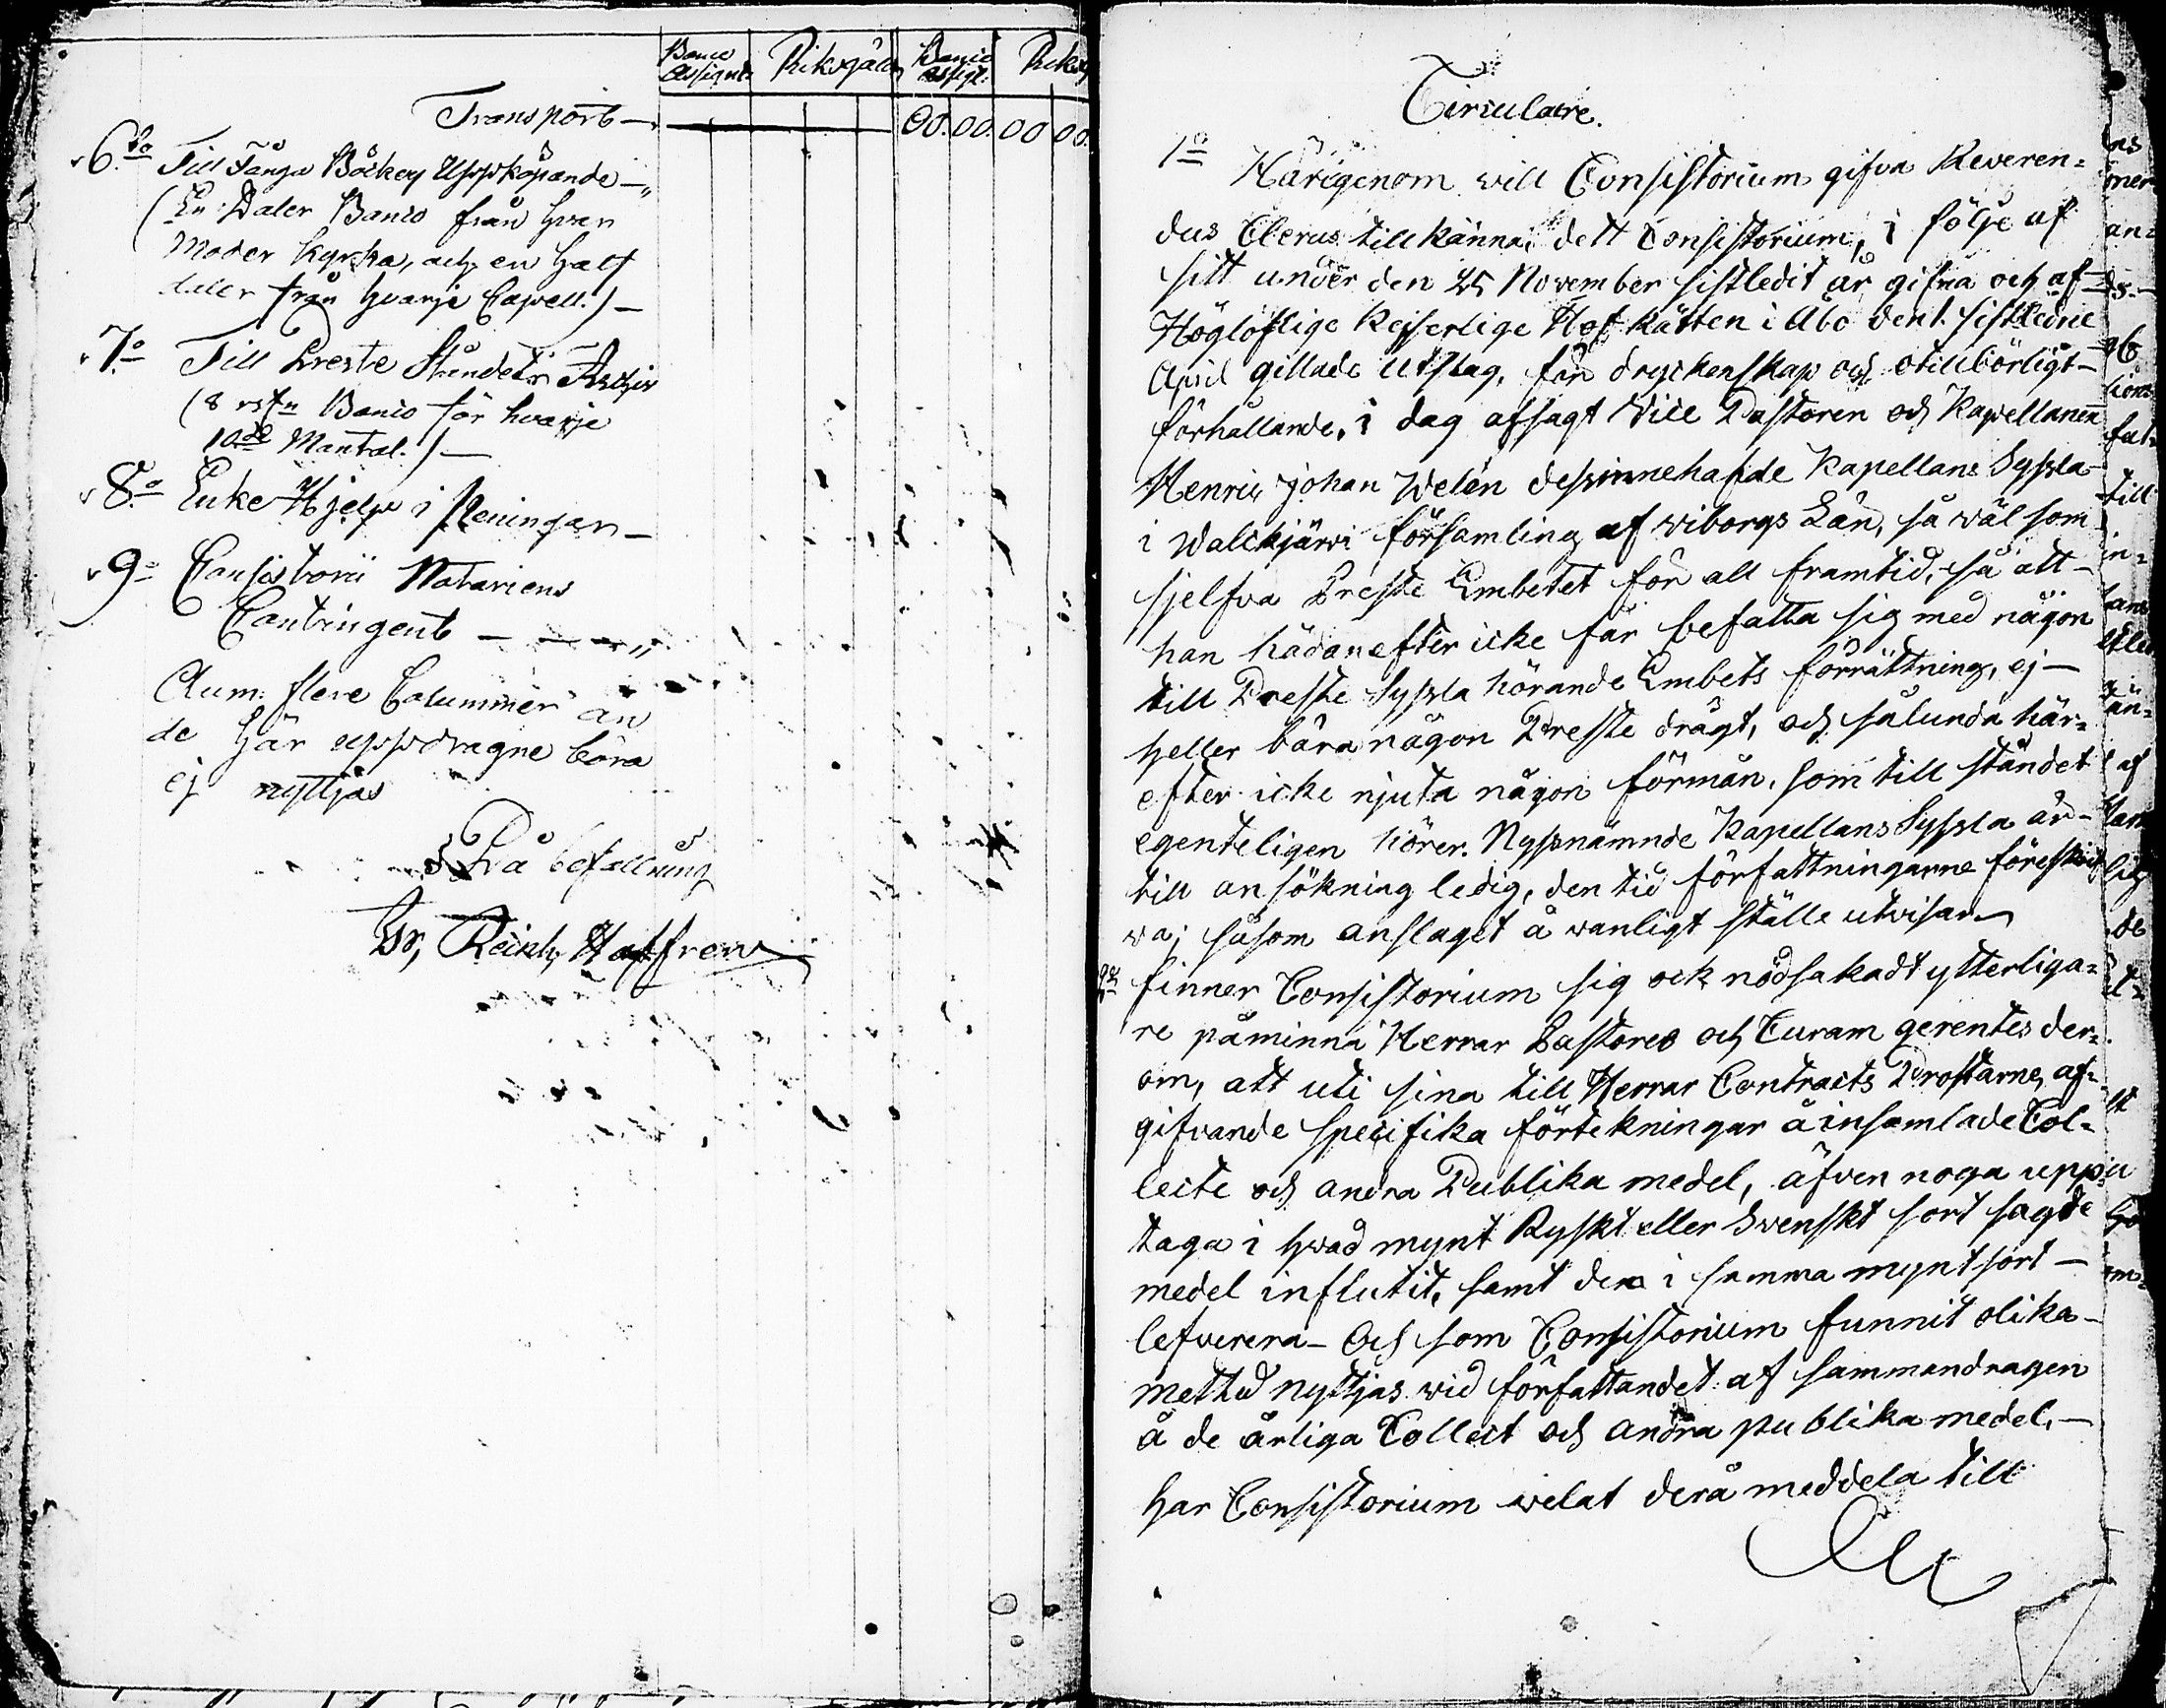 Banco Assignt. Riksgäld Banco Assigt. Riksg
Transport — 00. 00. 00 00.
6:to Till Fånga Böckers Uppköpande —
(En Daler Banco från hvar
Moder kyrka, och en half
daler från hvarje Capell.) —
7:o Till Preste Ståndets
(8 rst:r Banco för hvarje
10:de Mantal.) —
8:o Enke Hjelp i Peningar —
9:o Consistorii Notariens
Contingent — — — „
Anm: flere Columner än
de här uppdragne böra
ej nyttjas
På befallning
Gr, Reinh, Hoffren
Circulaire.
1:o Härigenom vill Consistorium gifva Reveren=
dus Clerus tillkänna, dett Consistorium, i följe af
sitt under den 25 November sistledit år gifna och af —
Höglöflige Kejserlige Hof Rätten i Åbo den 1. sistledne
April gillade Utslag, för dryckenskap och otillbörligt —
förhållande, i dag afsagt Vice Pastoren och Kapellanen
Henric Johan Welén dess innehafde Kapellans Syssla
i Walckjärvi församling af Wiborgs Län, så wäl som
sjelfva Preste Embetet för all framtid, så att —
han hädanefter icke får befatta sig med någon
till Preste Syssla hörande Embets förrättning, ej —
heller bära någon Preste drägt, och sålunda här=
efter icke njuta någon förmån, som till ståndet
egenteligen hörer. Nyssnämnde Kapellans Syssla är —
till ansökning ledig, den tid författningarne föreskrif
va; såsom anslaget å vanligt ställe utvisar.
2:o finner Consistorium sig ock nödsakadt ytterliga=
re påminna Herrar Pastores och Curam gerentes der=
om, att uti sina till Herrar Contracts Prostarne, af=
gifvande specifika förtekningar å insamlade Col=
lecte och andra Publika medel, äfven noga upp=
taga i hvad mynt Ryskt eller Svenskt sort sagde
medel influtit, samt dem i samma mynt sort —
lefverera — Och som Consistorium funnit olika —
method nyttjas vid författandet af sammandragen
å de årliga Collect och andra publika medel, —
har Consistorium velat derå meddela till